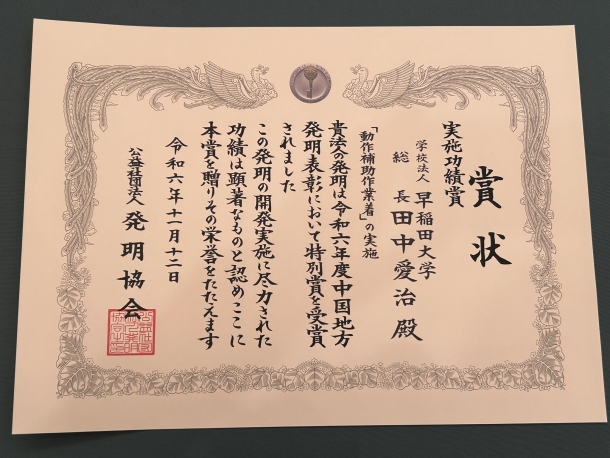 賞状
実施功績賞
学校法人 早稲田大学
総長 田中愛治 殿
「動作補助作業着」の実施
貴法人の発明は令和六年度中国地方
発明表彰において特別賞を受賞
されました
この発明の開発実施に尽力された
功績は顕著なものと認めここに
本賞を贈りその栄誉をたたえます
令和六年十一月十二日
公益社団法人 発明協会